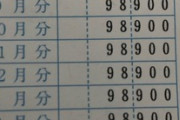 月分 98900
0月分 98900
1月分 98900
2月分 98900
月分 98900
月分 98900